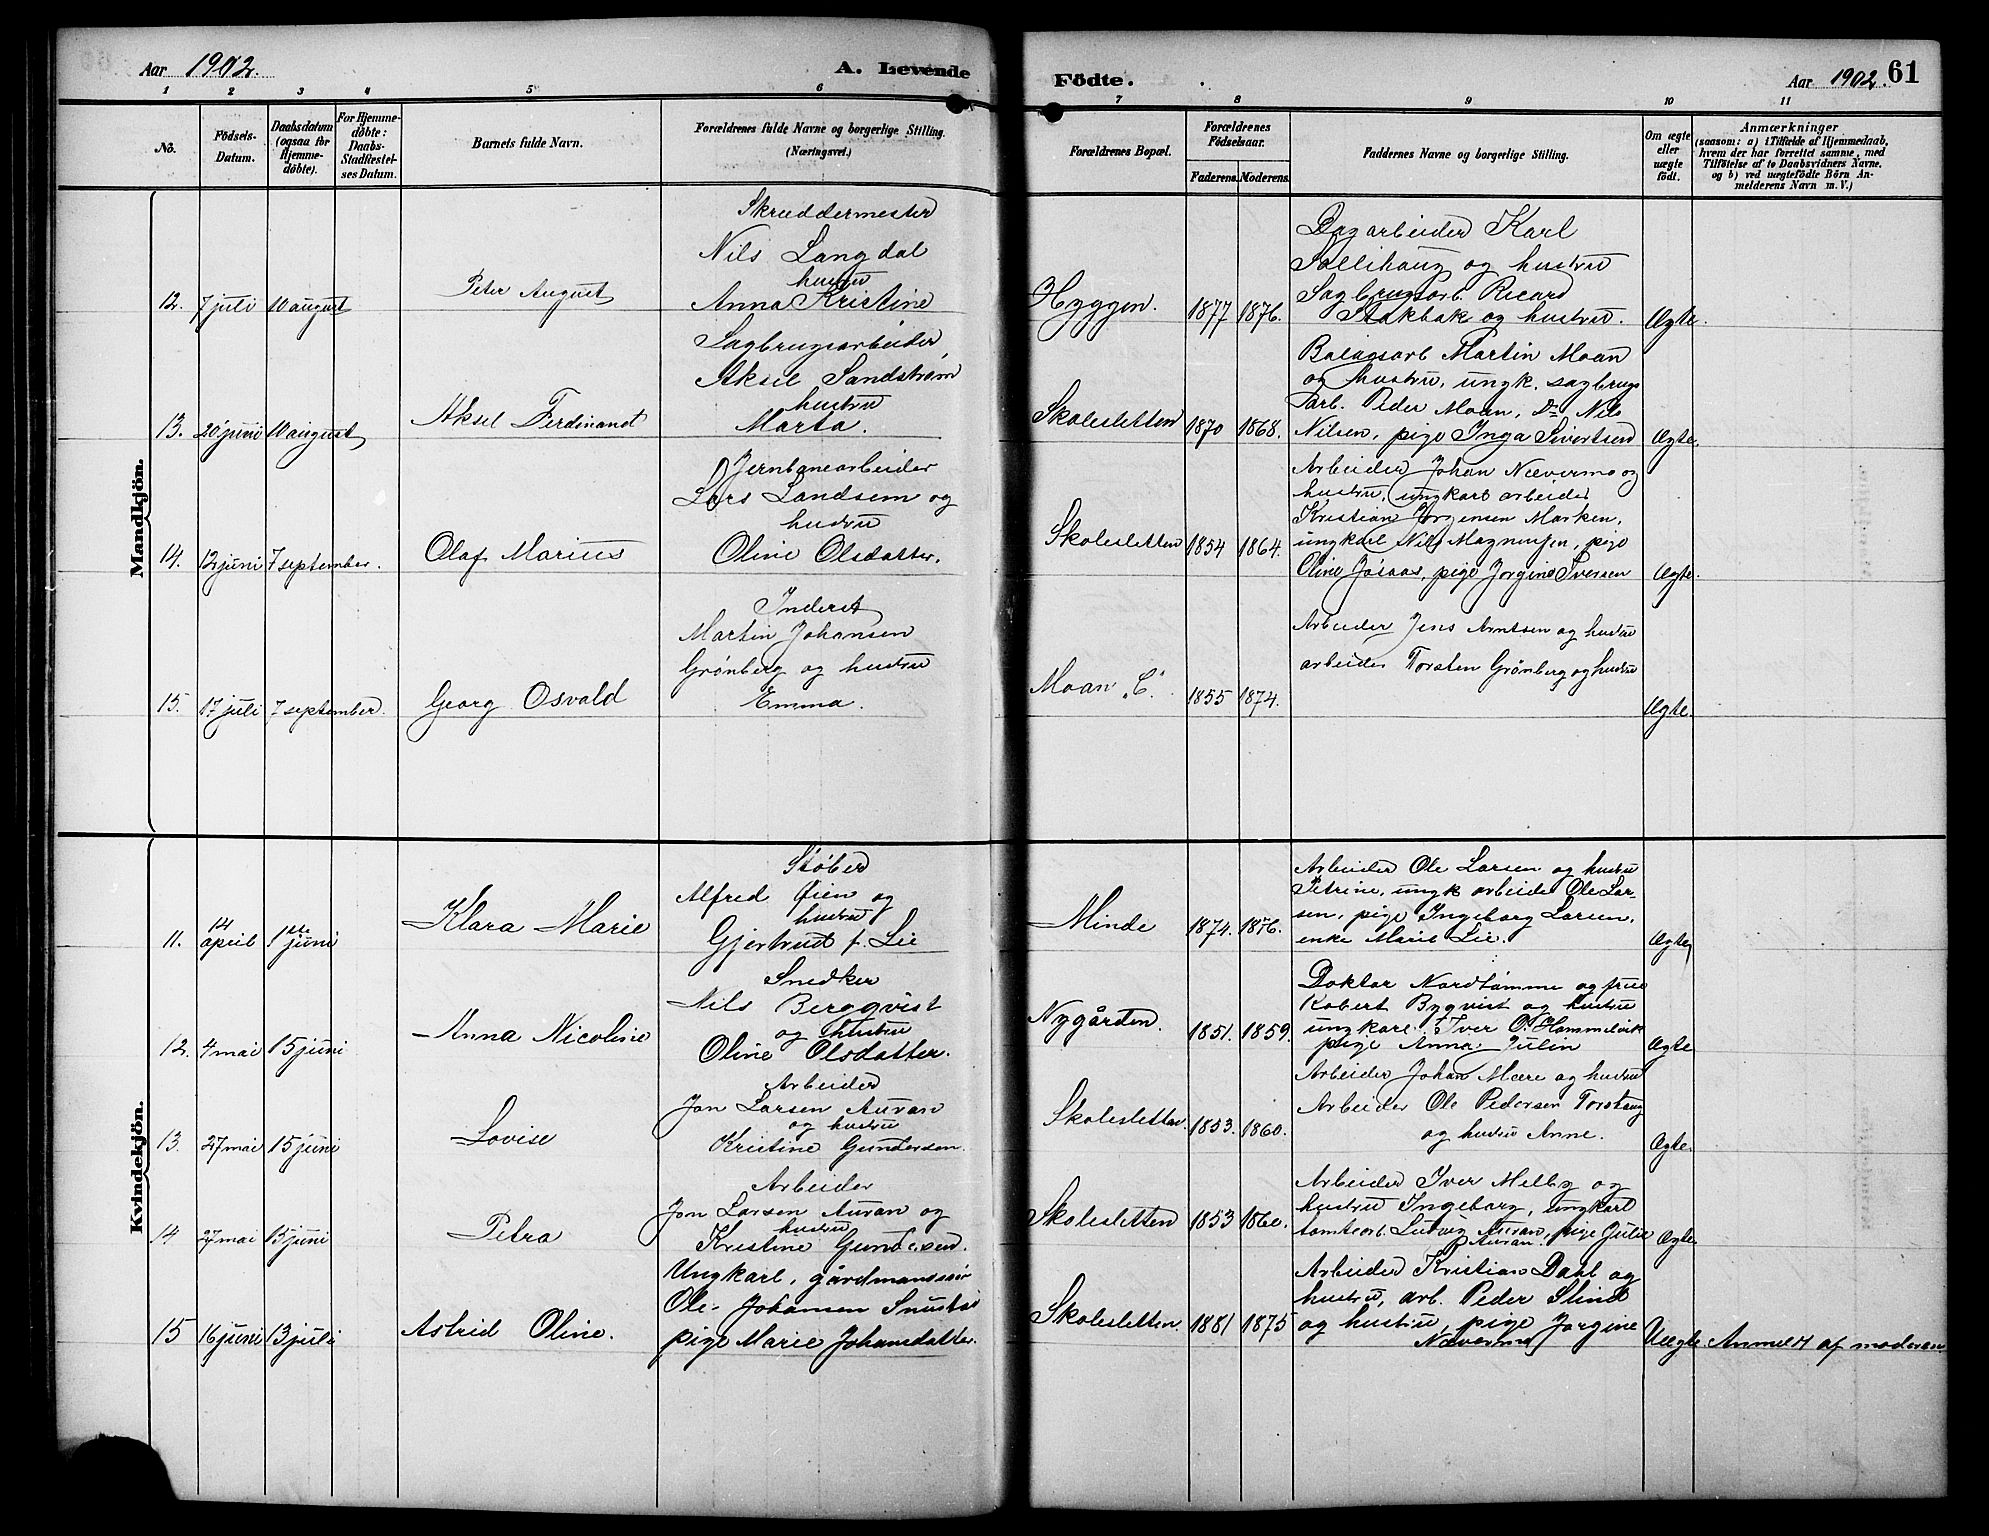 Aar 1902.
A. Levende
Födte.
Aar 1902.
61
1 2 3 4 5 6 7 8 9 10 11
Nö.
Födsels-
Datum.
Daabsdatum
(ogsaa for
Hjemme-
døbte).
For Hjemme-
døbte:
Daabs-
Stadfæstel-
ses Datum.
Barnets fulde Navn.
Forældrenes fulde Navne og borgerlige Stilling.
(Næringsvei.)
Forældrenes Bopæl.
Forældrenes
Födselsaar.
Faderens. Moderens.
Faddernes Navne og borgerlige Stilling.
Om ægte
eller
uægte
födt.
Anmærkninger
(saasom: a) i Tilfælde af Hjemmedaab,
hvem der har forrettet samme, med
Tilföielse af to Daabsvidners Navne,
og b) ved uægtefödte Börn An-
melderens Navn m. V.)
Mandkjön.
12. 7 juli 10 august
Peter August
Skræddermester
Nils Langdal
hustru
Anna Kristine
Hyggen.
1877 1876.
Dagarbeider Karl
Sollihaug og hustru
Sagbrugsarb. Ricard
Stokbak og hustru.
Ægte.
13. 20 juni 10 august
Aksel Ferdinand
Sagbrugsarbeider
Aksel Sandstrøm
hustru
Marta.
Skolesletten
1870 1868.
Martin Moan
og hustru, ungk. sagbrugs
arb. Peder Moan, Do Nils
Nilsen, pige Inga Sivertsen
Ægte.
14. 12 juni 7 september.
Olaf Marius
Jernbanearbeider
Lars Landsem og
hustru
Oline Olsdatter.
Skolesletten
1854 1864.
Arbeider Johan Nævermo og
hustru, ungkarl arbeider
Kristian Jørgensen Marken,
ungkarl Nils Magnussen, pige
Oline Jøsaas, pige Jorgine Iversen
Ægte.
15. 17 juli 7 september.
Georg Osvald
Inderst
Martin Johansen
Grønberg og hustru
Emma.
Moan "C."
1855 1874.
Arbeider Jens Arntsen og hustru
arbeider Torsten Grønberg og hustru
Ægte.
Kvindekjön.
11. 14 april 1ste juni
Klara Marie
Støber
Alfred Øien og
hustru
Gjertrud f. Lie
Minde
1874. 1876.
Arbeider Ole Larsen og hustru
Petrine, ungk arbeide Ole Lar-
sen, pige Ingeborg Larsen,
enke Marie Lie.
Ægte
12. 4 mai 15 juni
Anna Nicoline
Snedker
Nils Bergqvist
og hustru
Oline Olsdatter.
Nygården.
1851. 1859.
Doktor Nordtømme og frue
Robert Bygvist og hustru
ungkarl Iver O. Hammelvik
pige Anna Julin
Ægte
13. 27 mai 15 juni
Lovise
Arbeider
Jon Larsen Auran
og hustru
Kristine Gundersen.
Skolesletten.
1853. 1860.
Arbeider Johan Mære og hustru
Arbeider Ole Pedersen Torstaug
og hustru Anne.
Ægte.
14 27 mai 15 juni
Petra
Arbeider
Jon Larsen Auran og
hustru
Kristine Gundersen.
Skolesletten
1853 1860.
Arbeider Iver Melby og
hustru Ingeborg, ungkarl
tomtearb. Ludvig Auran, pige Julie
Auran.
Ægte.
15 16 juni 13 juli
Astrid Oline.
Ungkarl, gårdmanssøn
Ole Johansen
pige Marie Johansdatter
Skolesletten.
1881 1875
Arbeider Kristian Dahl og
hustru, arb. Peder Slind
og hustru, pige Jorgine
Nævermo
Uægte. Anmeldt af moderen.